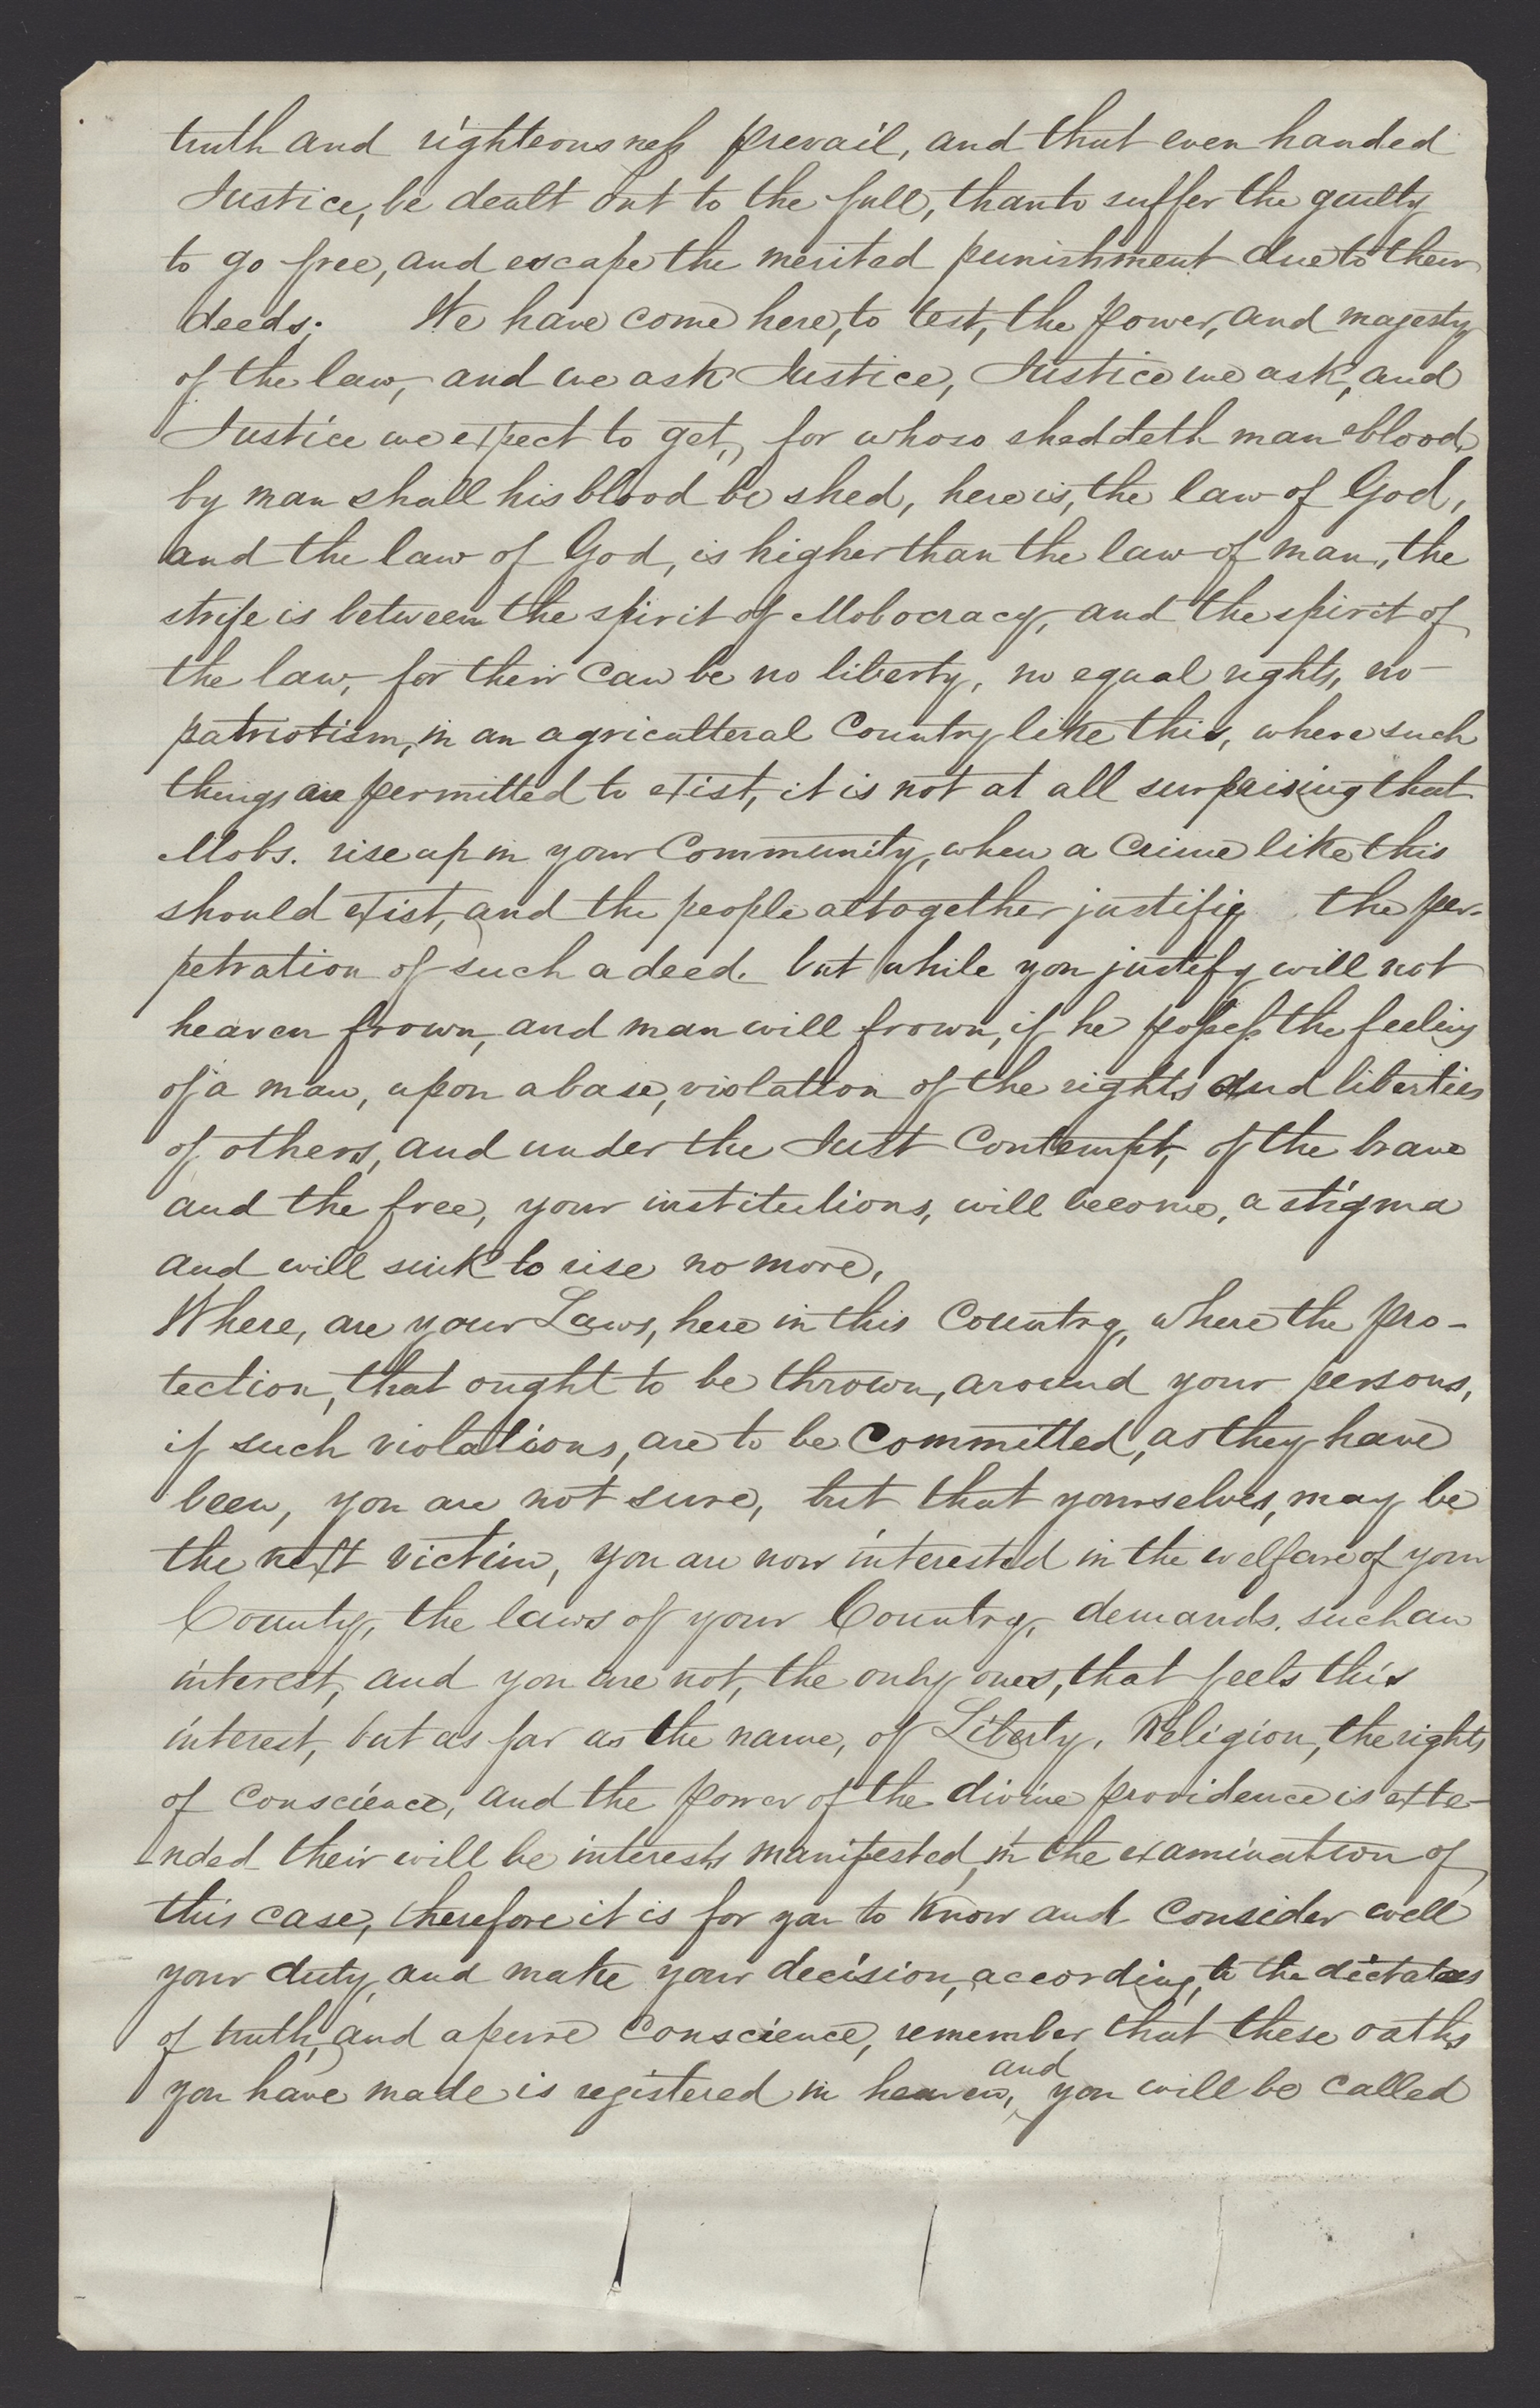 truth and righteousness prevail, and that even handed
Justice, be dealt out to the full, than to suffer the guilty
to go free, and escape the merited punishment due to their
deeds; We have come here, to test, the power, and majesty
of the law, and we ask Justice, Justice we ask, and
Justice we expect to get, for whoso sheddeth mans blood,
by man shall his blood be shed, here is, the law of God,
and the law of God, is higher than the law of man, the
strife is between the spirit of Mobocracy, and the spirit of
the law, for their can be no liberty, no equal rights, no
patriotism, in an agricultteral Country like this, where such
things are permitted to exist, it is not at all surprising that
Mobs. rise up in your Community, when a crime like this
should exist, and the people altogether justifiy the per-
petration of such a deed. but while you justify will not
heaven frown, and man will frown, if he possess the feeling
of a man, upon a base, violation of the rights and liberties
of others, and under the Just Contempt, of the brave
and the free, your institutions, will become, a stigma
and will sink to rise no more,
Where, are your Laws, here in this Country, where the pro-
tection, that ought to be thrown, around your persons,
if such violations, are to be committed, as they have
been, you are not sure, but that yourselves, may be
the next victim, you are now interested in the welfare of your
County, the laws of your Country, demands. such an
interest, and you are not, the only ones, that feels this
interest, but as far as the name, of Liberty, Religion, the rights
of conscience, and the power of the divine providence is exte-
nded their will be interests manifested, in the examination of
this case, therefore it is for you to know and consider well
your duty, and make your decision, according, to the dictates
of truth, and a pure conscience, remember, that these oaths
you have made is registered in heaven, and you will be called